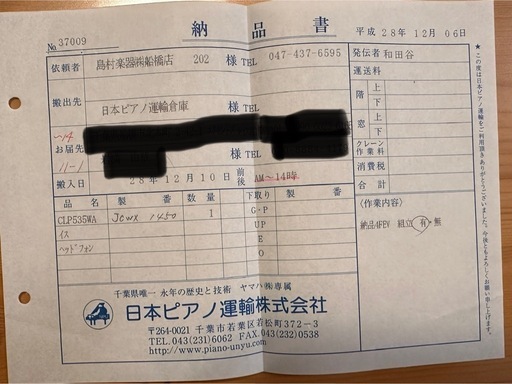 納品書
№ 37009
平成 28年 12月 06日
依頼者 島村楽器㈱船橋店 202 様 TEL 047-437-6595
発伝者 和田谷
運送料
搬出先 日本ピアノ運輸倉庫 様 TEL
階 上 下
〜14
お届先 様 TEL
窓 上 下
11-1
クレーン作業料
搬入日 28年 12月 10日 前後 AM〜14時
消費税
合計
品名 製番 数量 下取り 製番
〈作業内容〉
CLP535WA 1450 1 G・P
納品4FEV 組立 有・無
イス UP
ヘッドフォン E
O
千葉県唯一 永年の歴史と技術 ヤマハ㈱専属
日本ピアノ運輸株式会社
〒264-0021 千葉市若葉区若松町372-3
TEL.043(231)6062 FAX.043(232)0538
http://www.piano-unyu.com
★この度は日本ピアノ運輸をご利用頂きありがとうございました。今後ともよろしくお願い申し上げます。